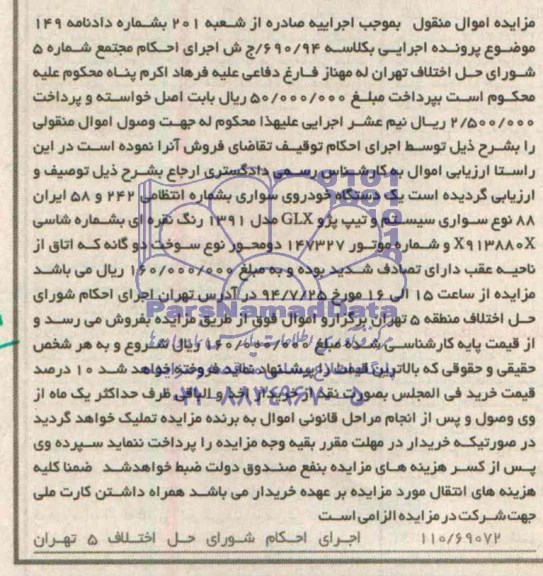 مزایده اموال منقول بموجب اجراییه صادره از شعبه ۲۰۱ بشماره دادنامه ۱۴۹
موضوع پرونده اجرایی بکلاسه ۶۹۰/۹۴/ج ش اجرای احکام مجتمع شماره ۵
شورای حل اختلاف تهران له مهناز فارغ دفاعی علیه فرهاد اکرم پناه محکوم علیه
محکوم است بپرداخت مبلغ ۵۰/۰۰۰/۰۰۰ ریال بابت اصل خواسته و پرداخت
۲/۵۰۰/۰۰۰ ریال نیم عشر اجرایی علیهذا محکوم له جهت وصول اموال منقولی
را بشرح ذیل توسط اجرای احکام توقیف تقاضای فروش آنرا نموده است در این
راستا ارزیابی اموال به کارشناس رسمی دادگستری ارجاع بشرح ذیل توصیف و
ارزیابی گردیده است یک دستگاه خودروی سواری بشماره انتظامی ۲۴۲ و ۵۸ ایران
۸۸ نوع سواری سیستم و تیپ پژو GLX مدل ۱۳۹۱ رنگ نقره ای بشماره شاسی
X۹۱۳۸۸۰X و شماره موتور ۱۴۷۳۲۷ دومحور نوع سوخت دو گانه که اتاق از
ناحیه عقب دارای تصادف شدید بوده و به مبلغ ۱۶۰/۰۰۰/۰۰۰ ریال می باشد
مزایده از ساعت ۱۵ الی ۱۶ مورخ ۹۴/۷/۲۵ در آدرس تهران اجرای احکام شورای
حل اختلاف منطقه ۵ تهران برگزارو اموال فوق از طریق مزایده بفروش می رسد و
از قیمت پایه کارشناسی شده مبلغ ۱۶۰/۰۰۰/۰۰۰ ریال شروع و به هر شخص
حقیقی و حقوقی که بالاترین قیمت را پیشنهاد نماید فروخته خواهد شد ۱۰ درصد
قیمت خرید فی المجلس بصورت نقد از خریدار اخذ و الباقی ظرف حداکثر یک ماه از
وی وصول و پس از انجام مراحل قانونی اموال به برنده مزایده تملیک خواهد گردید
در صورتیکه خریدار در مهلت مقرر بقیه وجه مزایده را پرداخت ننماید سپرده وی
پس از کسر هزینه های مزایده بنفع صندوق دولت ضبط خواهدشد ضمنا کلیه
هزینه های انتقال مورد مزایده بر عهده خریدار می باشد همراه داشتن کارت ملی
جهت شرکت در مزایده الزامی است
۱۱۰/۶۹۰۷۲ اجرای احکام شورای حل اختلاف ۵ تهران
ParsNamadData
۰۲۱-۸۸۳۴۹۶۷۰-۵